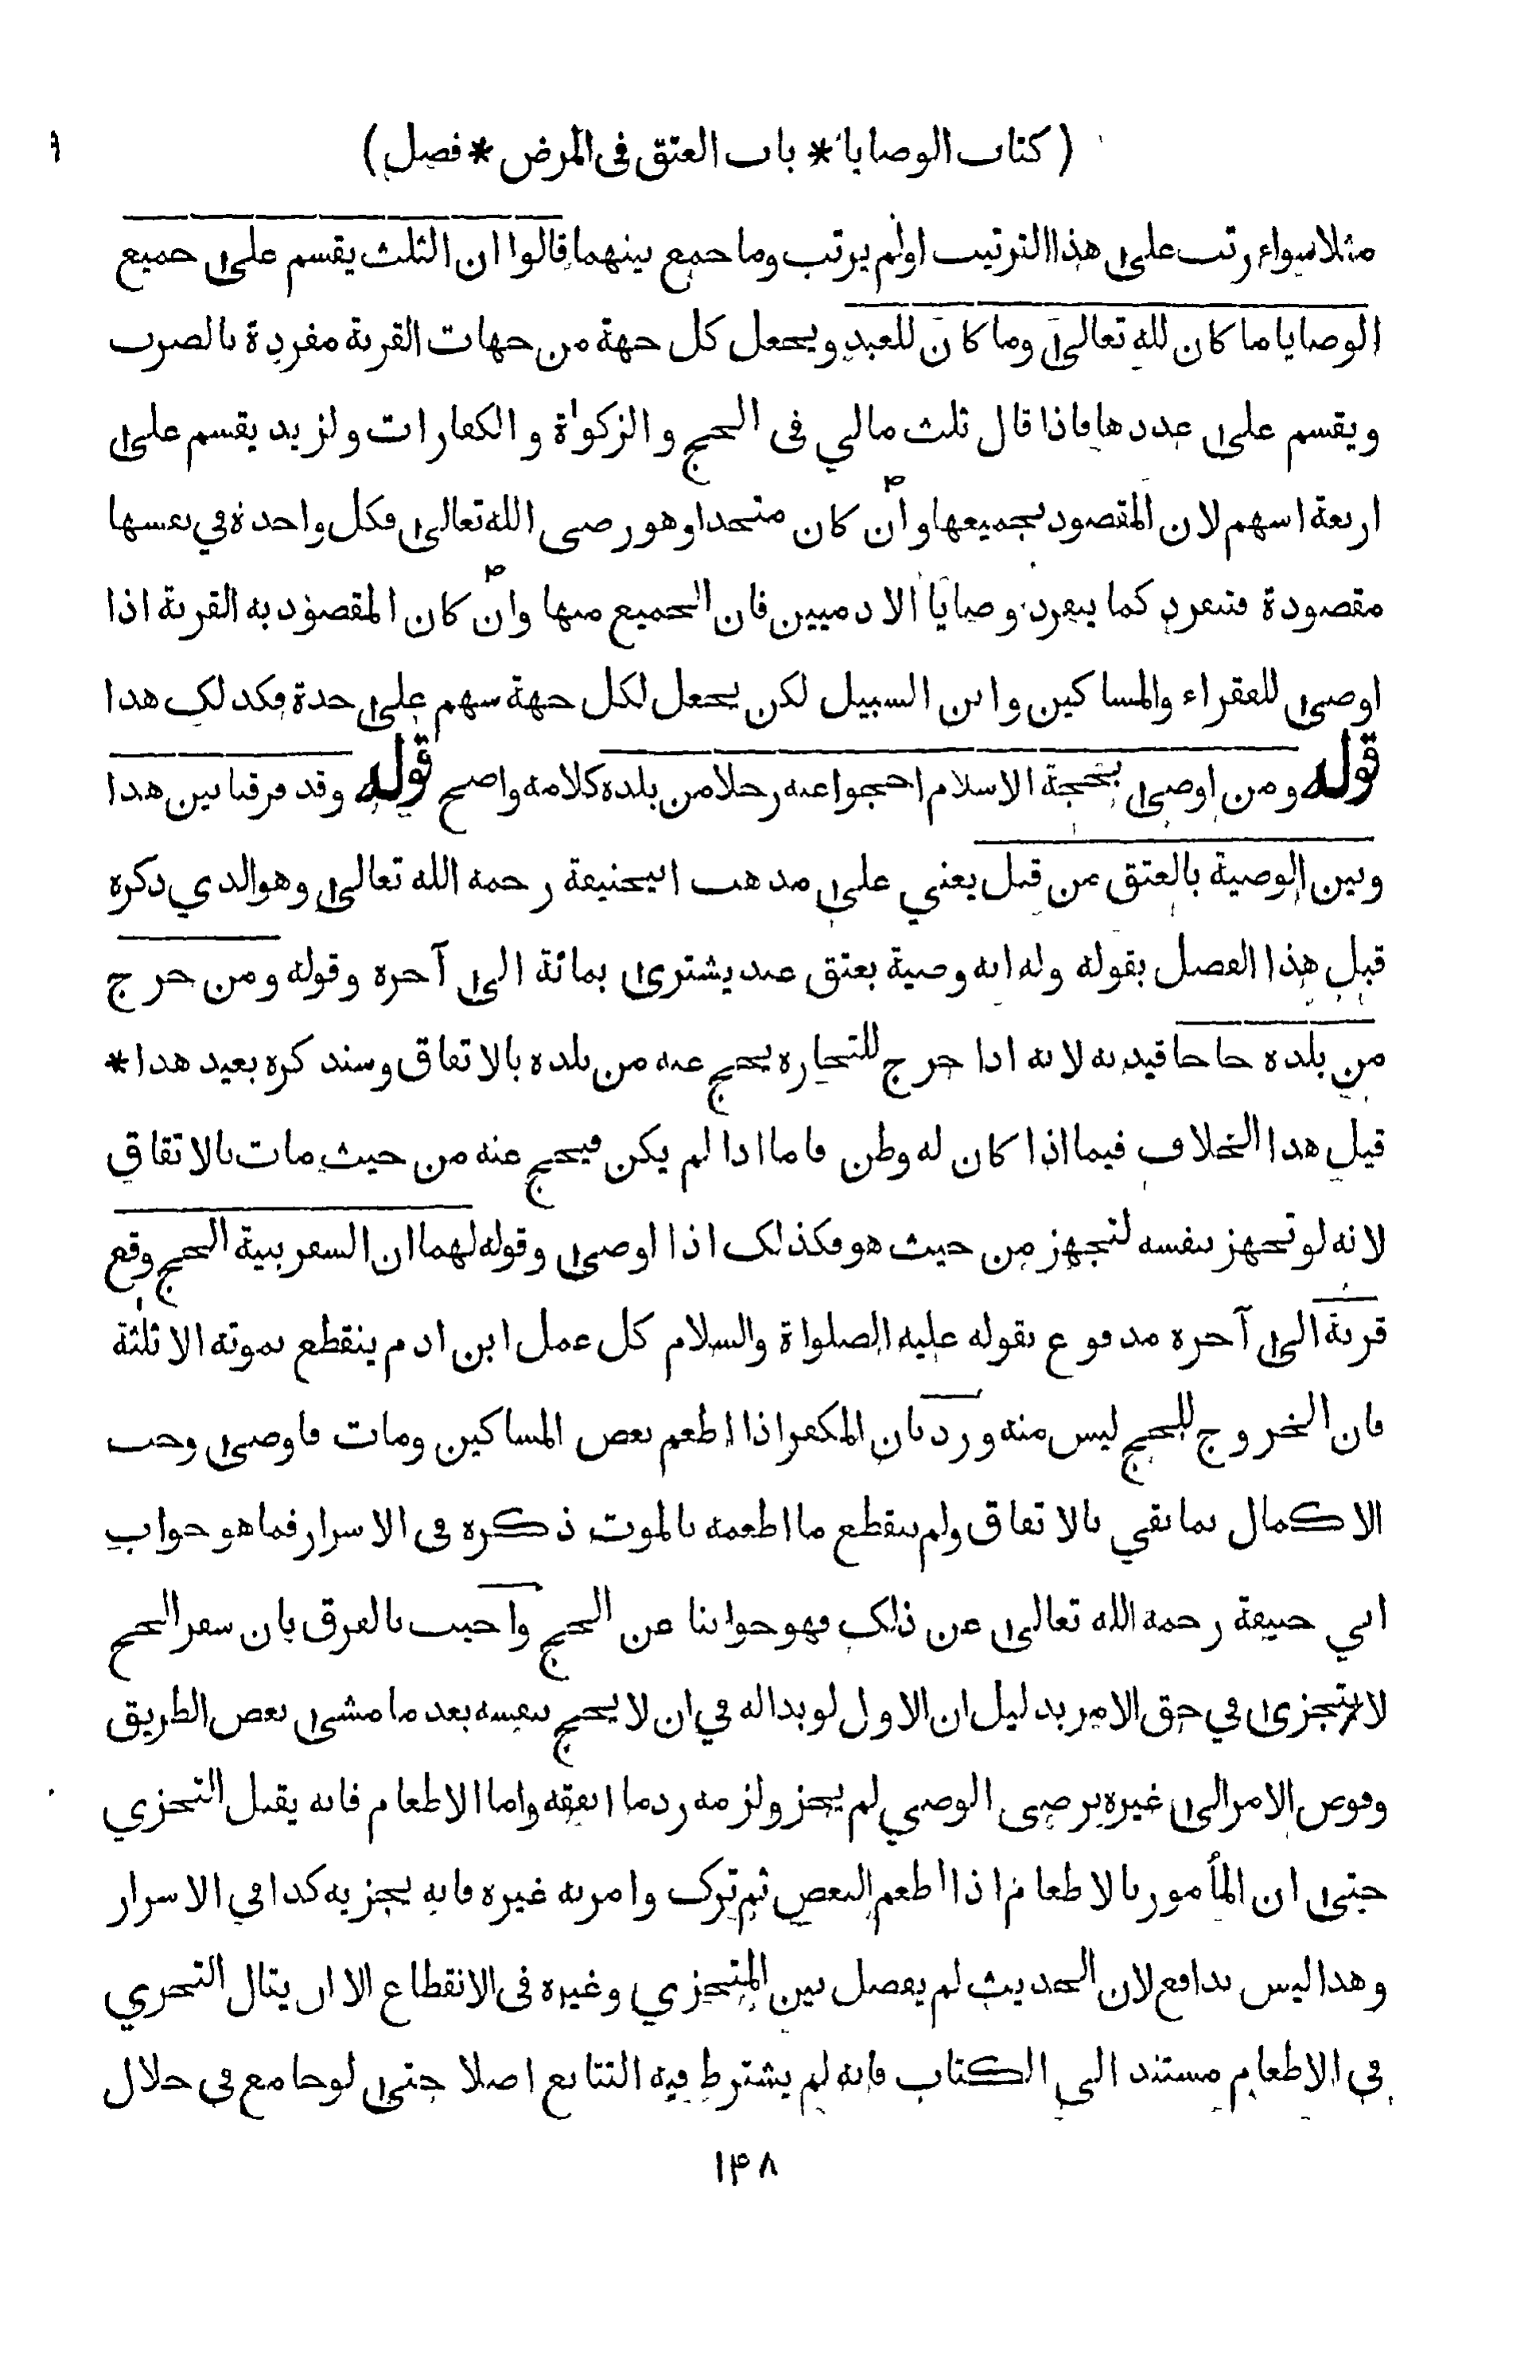 ( كتاب الوصايا * باب العتق فى المرض * فصل )
مثلا سواء رتب على هذا الترتيب اولم يرتب وما جمع بينهما قالوا ان الثلث يقسم على جميع
الوصايا ما كان لله تعالى وما كان للعبد ويجعل كل جهة من جهات القربة مفردة بالضرب
ويقسم على عددها فاذا قال ثلث مالي فى الحج والزكوٰة والكفارات ولزيد يقسم على
اربعة اسهم لان المقصود بجميعها وان كان متحدا وهو رضى الله تعالى فكل واحدة في نفسها
مقصودة فتنفرد كما ينفرد وصايا الادميين فان الجميع منها وان كان المقصود به القربة اذا
اوصى للفقراء والمساكين وابن السبيل لكن يجعل لكل جهة سهم على حدة فكذلك هذا
قوله ومن اوصى بحجة الاسلام احجوا عنه رجلا من بلده كلامه واضح قوله وقد فرقنا بين هذا
وبين الوصية بالعتق من قبل يعني على مذهب ابيحنيفة رحمه الله تعالى وهوالذي ذكره
قبل هذا الفصل بقوله وله انه وصية بعتق عبد يشترى بمائة الى آخره وقوله ومن خرج
من بلده حاجا قيد به لانه اذا خرج للتجاره يحج عنه من بلده بالاتفاق وسنذكره بعيد هذا *
قيل هذا الخلاف فيما اذا كان له وطن فاما اذا لم يكن فيحج عنه من حيث مات بالاتفاق
لانه لو تجهز بنفسه لتجهز من حيث هو فكذلك اذا اوصى وقوله لهما ان السفر بنية الحج وقع
قربة الى آخره مدفوع بقوله عليه الصلواة والسلام كل عمل ابن ادم ينقطع بموته الا ثلثة
فان الخروج للحج ليس منه ورد بان المكفر اذا اطعم بعض المساكين ومات فاوصى وجب
الاكمال بما بقي بالاتفاق ولم ينقطع ما اطعمه بالموت ذكره فى الاسرار فما هو جواب
ابي حنيفة رحمه الله تعالى عن ذلك فهو جوابنا عن الحج واجيب بالفرق بان سفر الحج
لا يتجزى في حق الامر بدليل ان الاول لو بداله في ان لا يحج بنفسه بعد ما مشى بعض الطريق
وفوض الامر الى غيره برضى الوصي لم يجز ولزمه رد ما انفقه واما الاطعام فانه يقبل التجزي
حتى ان المأمور بالاطعام اذا اطعم البعض ثم ترك وامر به غيره فانه يجزيه كذا في الاسرار
وهذا ليس بدافع لان الحديث لم يفصل بين المتجزي وغيره فى الانقطاع الا ان يقال التجزي
في الاطعام مستند الى الكتاب فانه لم يشترط فيه التتابع اصلا حتى لو جامع فى خلال
١۴٨